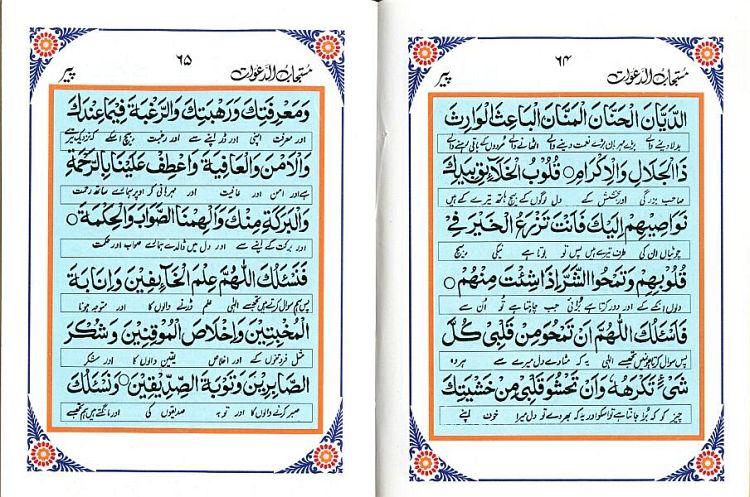 ۶۴
مستجاب الدعوات
پیر
الدَّيَّانَ الْحَنَّانَ الْمَنَّانَ الْبَاعِثَ الْوَارِثَ
بدلا دینے والے بڑے مہربان بڑے نعمت دینے والے اٹھانے والے مُردوں کے باقی رہنے والے
ذَا الْجَلَالِ وَالْاِكْرَامِ ○ قُلُوْبُ الْخَلَآئِقِ بِيَدِكَ
صاحب بزرگی اور بخشش کے دل لوگوں کے بیچ ہاتھ تیرے کے ہیں
نَوَاصِيْهِمْ اِلَيْكَ فَاَنْتَ تَزْرَعُ الْخَيْرَ فِيْ
چوٹیاں ان کی طرف تیرے ہیں پس تو بوتا ہے نیکی بیچ
قُلُوْبِهِمْ وَتَمْحُوا الشَّرَّ اِذَا شِئْتَ مِنْهُمْ ○
دلوں انکے کے اور دور کرتا ہے بُرائی جب چاہتا ہے تُو اُن سے
فَاَسْئَلُكَ اللّٰهُمَّ اَنْ تَمْحُوَ مِنْ قَلْبِيْ كُلَّ
پس سوال کرتا ہوں میں تجھسے الٰہی یہ کہ مٹادے دل میرے سے ہر وہ
شَيْءٍ تَكْرَهُهٗ وَاَنْ تَحْشُوَ قَلْبِيْ مِنْ خَشْيَتِكَ
چیز کو کہ بُرا جانتا ہے تو اسکو اور یہ کہ بھر دے تو دل میرا خوف اپنے
۶۵
مستجاب الدعوات
پیر
وَمَعْرِفَتِكَ وَرَهْبَتِكَ وَالرَّغْبَةِ فِيْمَا عِنْدَكَ
اور معرفت اپنی اور ڈر اپنے سے اور رغبت بیچ اسکے کہ نزدیک تیرے
وَالْاَمْنِ وَالْعَافِيَةِ وَاعْطِفْ عَلَيْنَا بِالرَّحْمَةِ
ہے اور امن اور عافیت اور مہربانی کر اوپر ہمارے ساتھ رحمت
وَالْبَرَكَةِ مِنْكَ وَاَلْهِمْنَا الصَّوَابَ وَالْحِكْمَةَ ○
اور برکت کے اپنے سے اور دل میں ڈالدے ہمارے صواب اور حکمت
فَنَسْئَلُكَ اللّٰهُمَّ عِلْمَ الْخَآئِفِيْنَ وَاِنَابَةَ
پس ہم سوال کرتے ہیں تجھسے الٰہی علم ڈرنے والوں کا اور متوجہ ہونا
الْمُخْبِتِيْنَ وَاِخْلَاصَ الْمُوْقِنِيْنَ وَشُكْرَ
مثل فروتنوں کے اور اخلاص یقین والوں کا اور شکر
الصَّابِرِيْنَ وَتَوْبَةَ الصِّدِّيْقِيْنَ ○ وَنَسْئَلُكَ
صبر کرنے والوں کا اور توبہ صدیقوں کی اور مانگتے ہیں ہم تجھسے